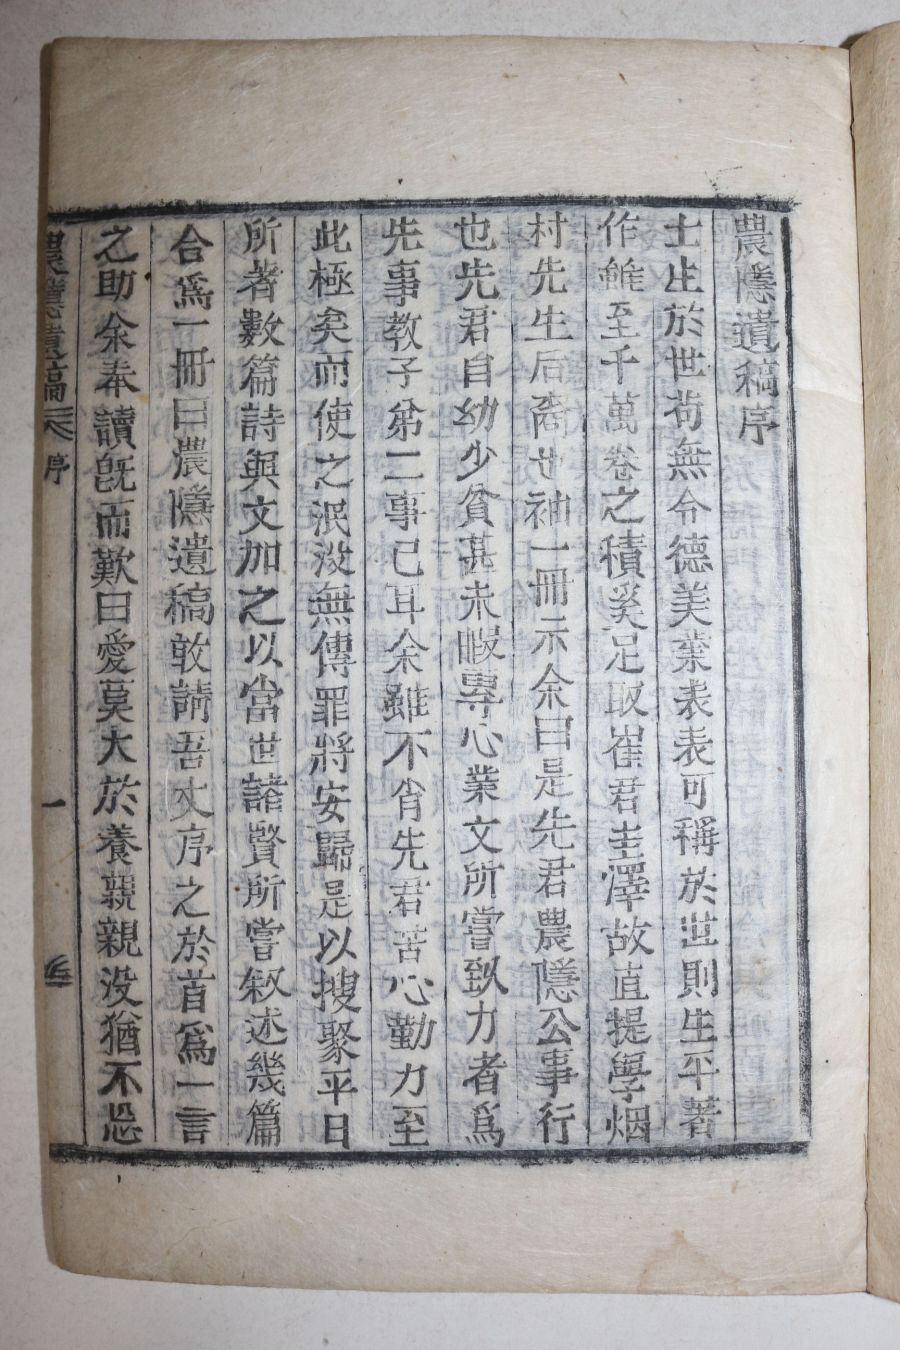 農隱遺稿序
士生於世苟無令德美業表表可稱於世則生平著
作雖至千萬卷之積奚足取崔君圭澤故直提學烟
村先生后裔也袖一冊示余曰是先君農隱公事行
也先君自幼少貧甚未暇專心業文所嘗致力者爲
先事教子弟二事已耳余雖不肖先君苦心勤力至
此極矣而使之泯没無傳罪將安歸是以搜聚平日
所著數篇詩與文加之以當世諸賢所嘗敍述幾篇
合爲一冊曰農隱遺稿敢請吾丈序之於首爲一言
之助余奉讀旣而歎曰愛莫大於養親親没猶不忍
農隱遺稿 序 一